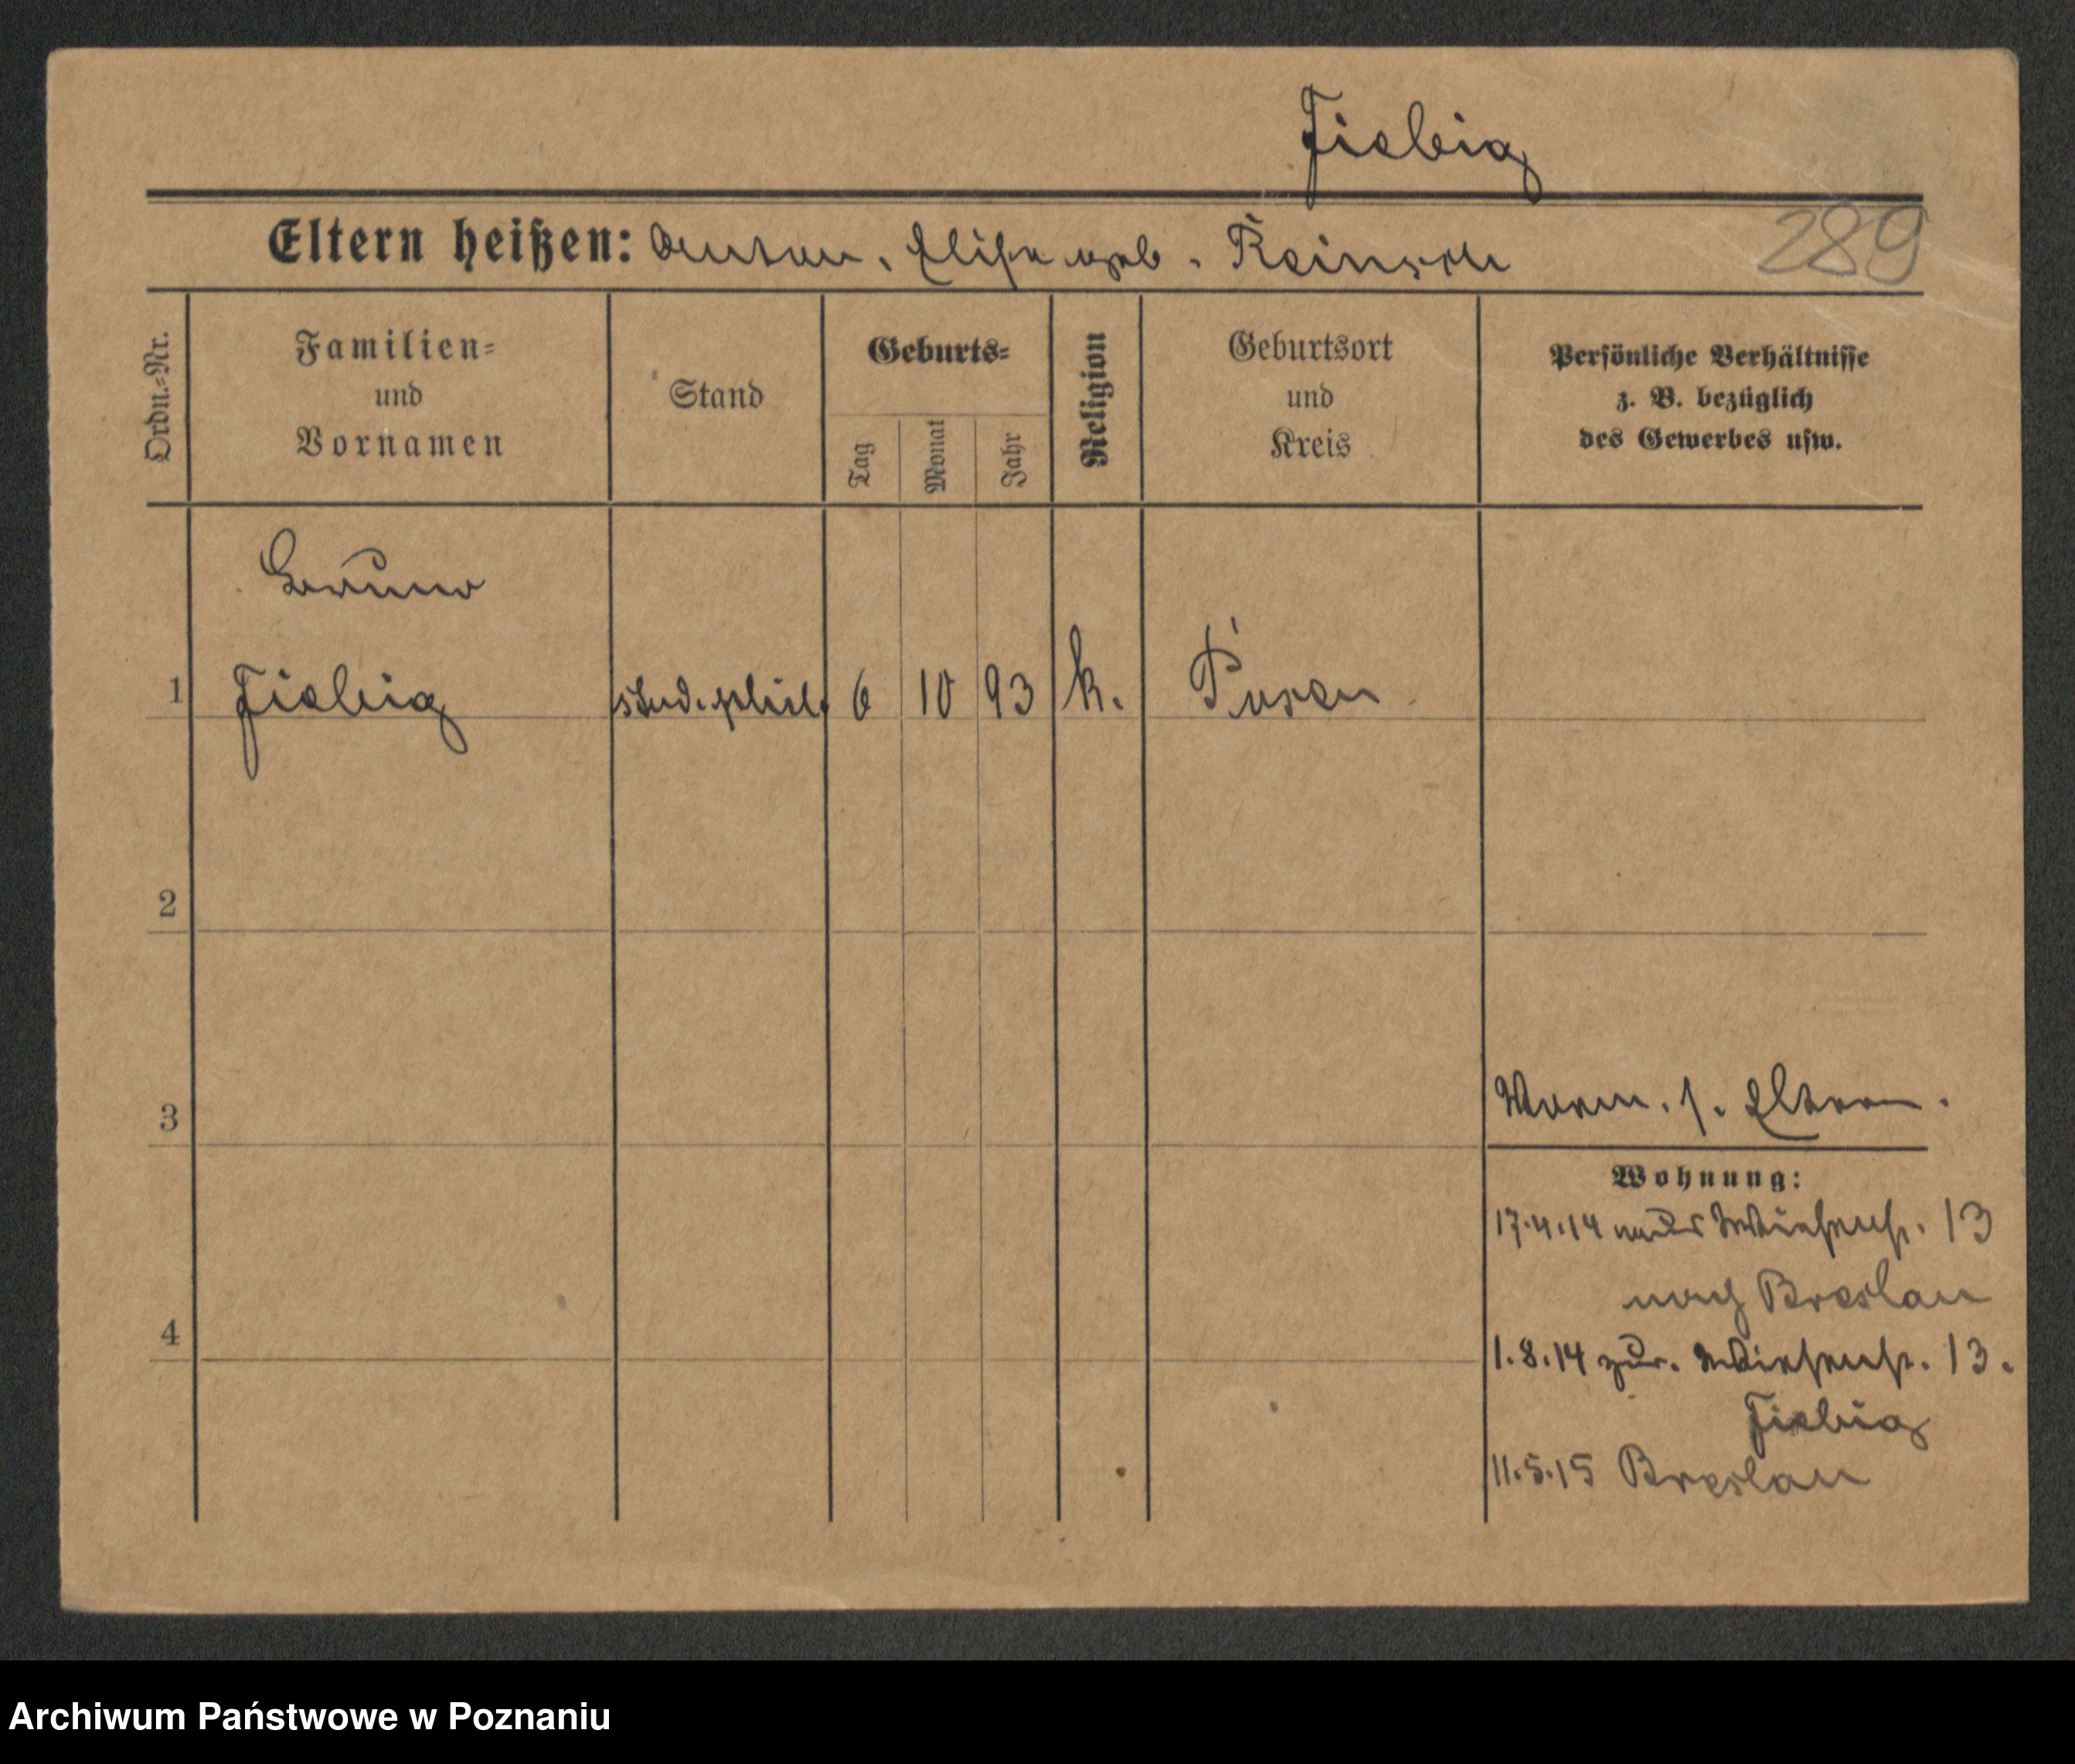 Fiebig
Eltern heißen: Anton, Elise geb. Reinsch
289
Ordn.=Nr.
Familien=
und
Vornamen
Stand
Geburts=
Tag
Monat
Jahr
Religion
Geburtsort
und
Kreis
Persönliche Verhältnisse
z. B. bezüglich
des Gewerbes usw.
Bruno
1 Fiebig stud. phil. 6 10 93 k. Posen
2
3
Vorm. s. Eltern.
Wohnung:
17.4.14 Wiesenstr. 13
nach Breslau
4
1.8.14 zur. Wiesenstr. 13.
Fiebig
11.5.15 Breslau
Archiwum Państwowe w Poznaniu